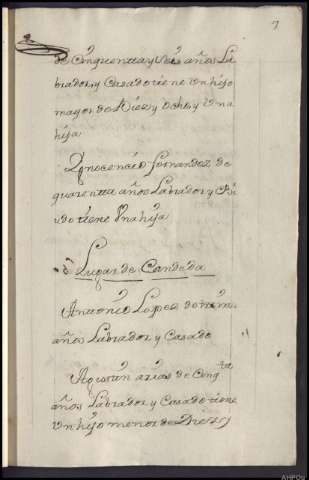 7
de Cinquentta y Seis años La
brador y Casado tiene Un hijo
mayor de Diez y Ocho y Una
hija
Ynocencio fernandez de
quarentta años Labrador y Vi
udo tiene Una hija
Lugar de Candeda
Antonio Lopez de trein.
años Labrador y Casado
Agustin arias de Cinqta
años Labrador y Casado tiene
Un hijo menor de Diez y
AHPOu